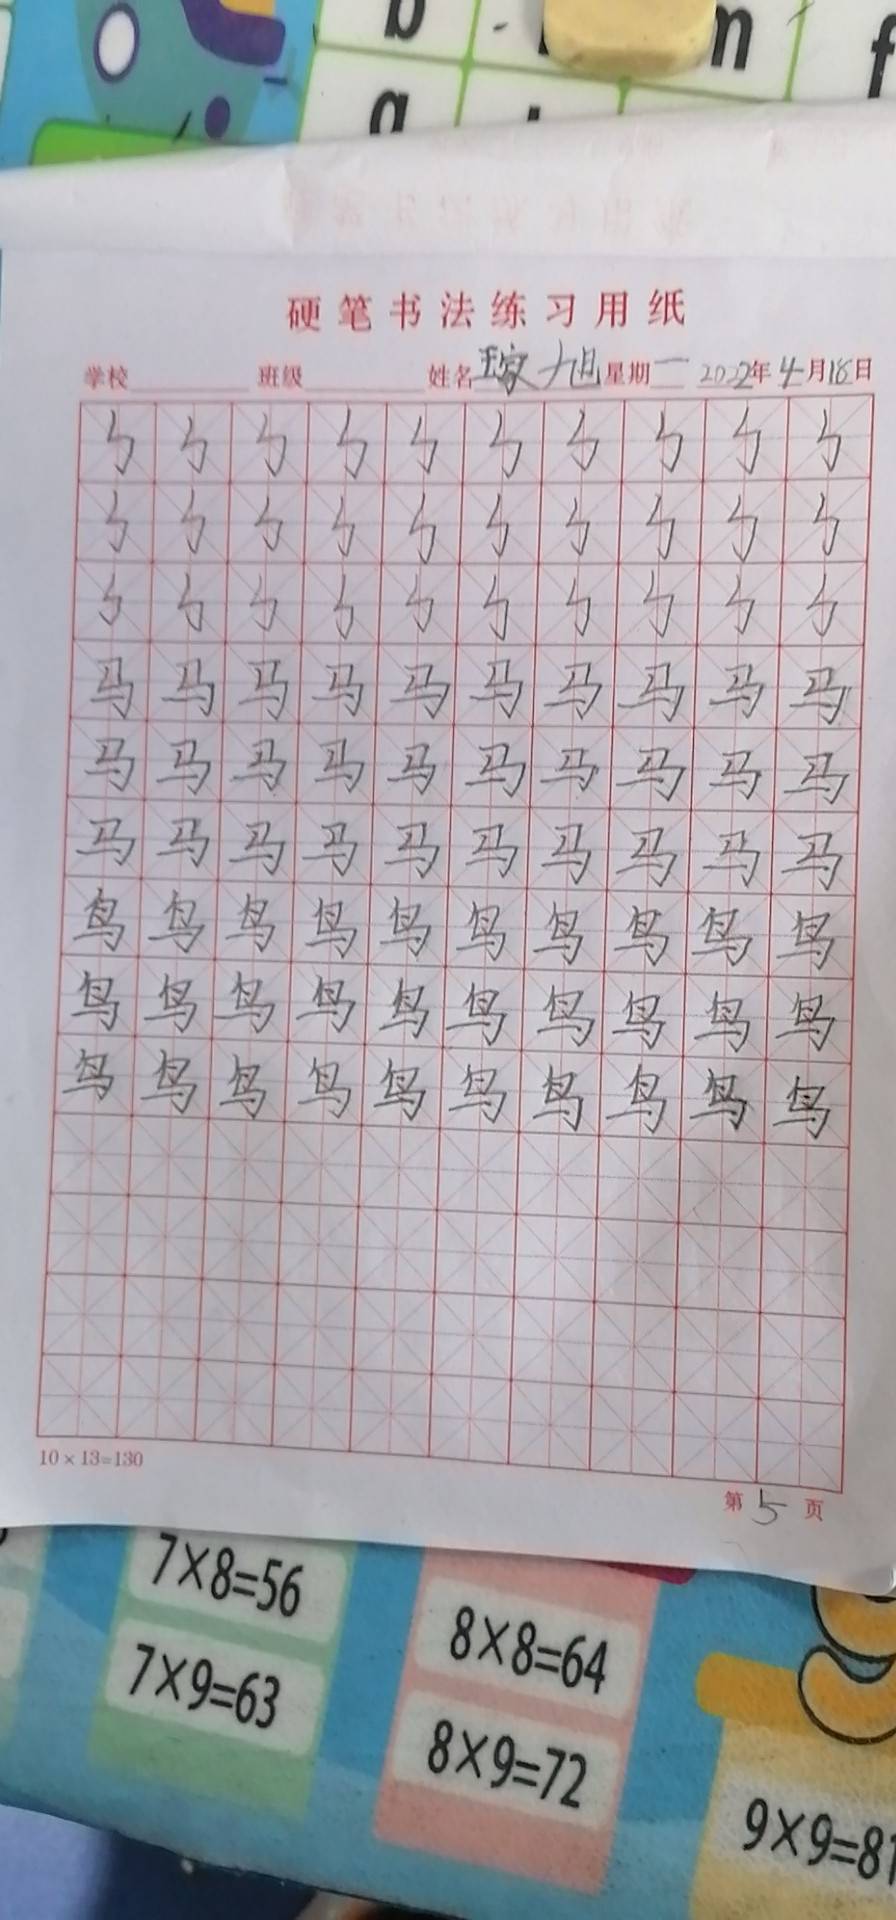 b m f
g
硬笔书法练习用纸
学校 班级 姓名 旭 星期一 2022年4月18日
ㄣ ㄣ ㄣ ㄣ ㄣ ㄣ ㄣ ㄣ ㄣ ㄣ
ㄣ ㄣ ㄣ ㄣ ㄣ ㄣ ㄣ ㄣ ㄣ ㄣ
ㄣ ㄣ ㄣ ㄣ ㄣ ㄣ ㄣ ㄣ ㄣ ㄣ
马 马 马 马 马 马 马 马 马 马
马 马 马 马 马 马 马 马 马 马
马 马 马 马 马 马 马 马 马 马
鸟 鸟 鸟 鸟 鸟 鸟 鸟 鸟 鸟 鸟
鸟 鸟 鸟 鸟 鸟 鸟 鸟 鸟 鸟 鸟
鸟 鸟 鸟 鸟 鸟 鸟 鸟 鸟 鸟 鸟
10×13=130
第5页
7×8=56
8×8=64
7×9=63
8×9=72
9×9=81